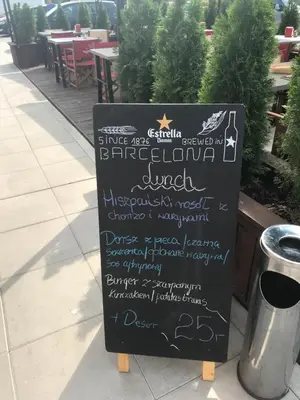 Estrella
Damm
SINCE 1876 BREWED IN
BARCELONA
Lunch
Hiszpański rosół z
chorizo i warzywami
Dorsz z pieca / czarna
soczewica / grillowane warzywa /
sos cytrynowy
Burger z szarpanym
kurczakiem / patatas bravas
+ Deser 25,-